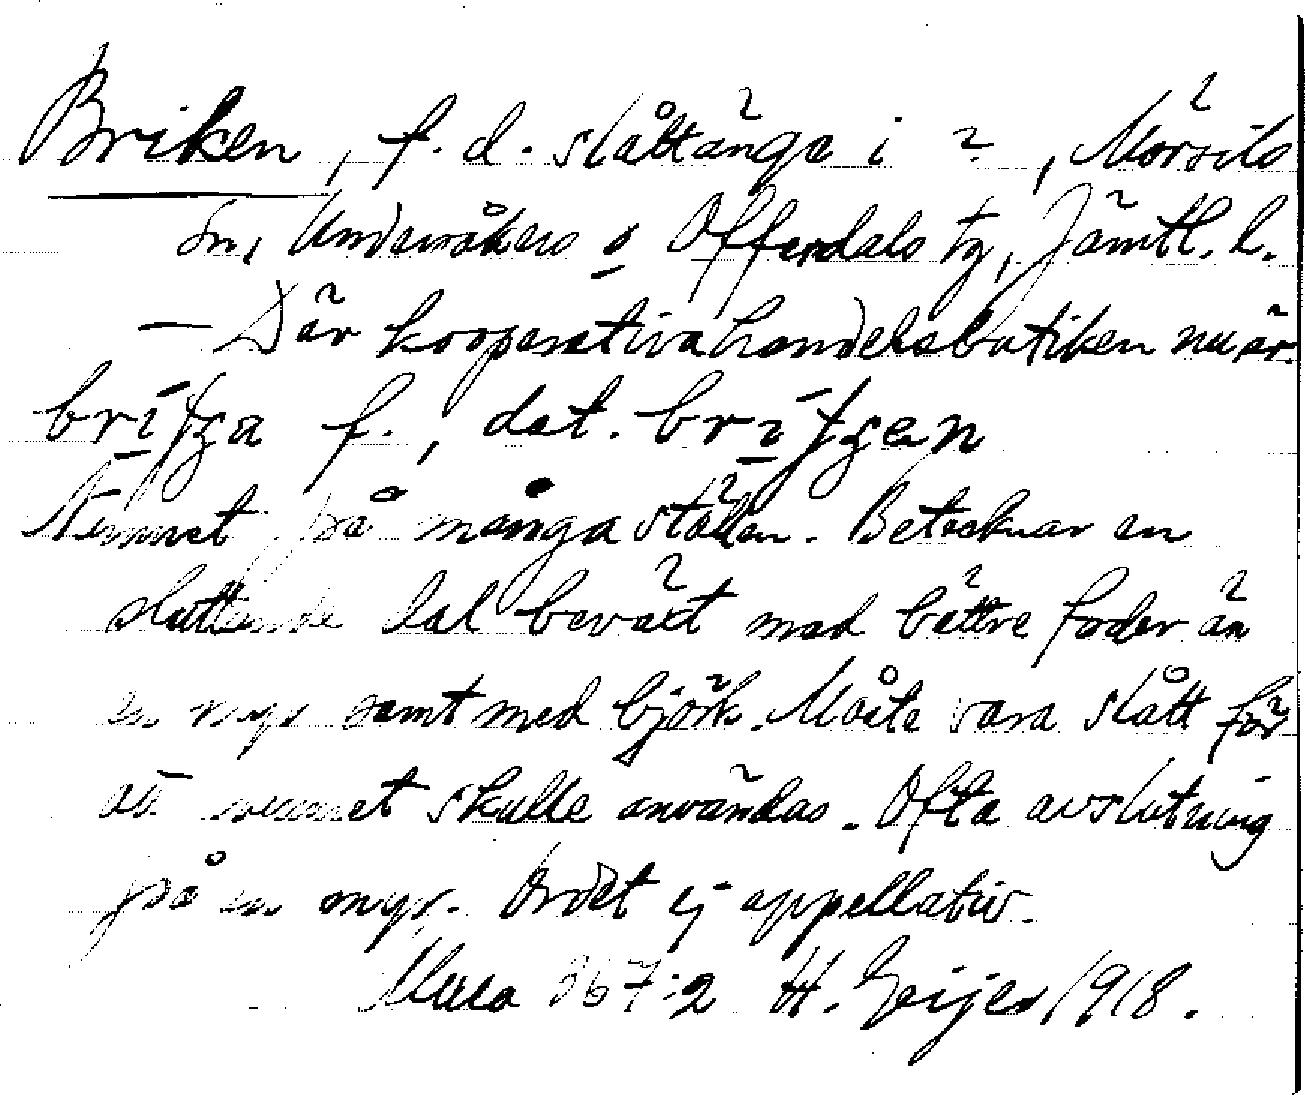 Briken, f.d. slåttänge i ?, Mörsils
sn, Undersåkers o Offerdals tg, Jämtl. l.
— Där kooperativa handelsbutiken nu är.
f., dat.
Namnet på många ställen. Betecknar en
sluttande dal beväxt med bättre foder än
en myr samt med björk. Måste vara slått för
att namnet skulle användas. Ofta avslutning
på en myr. Ordet ej appellativ.
367:2 H. Geijer 1918.